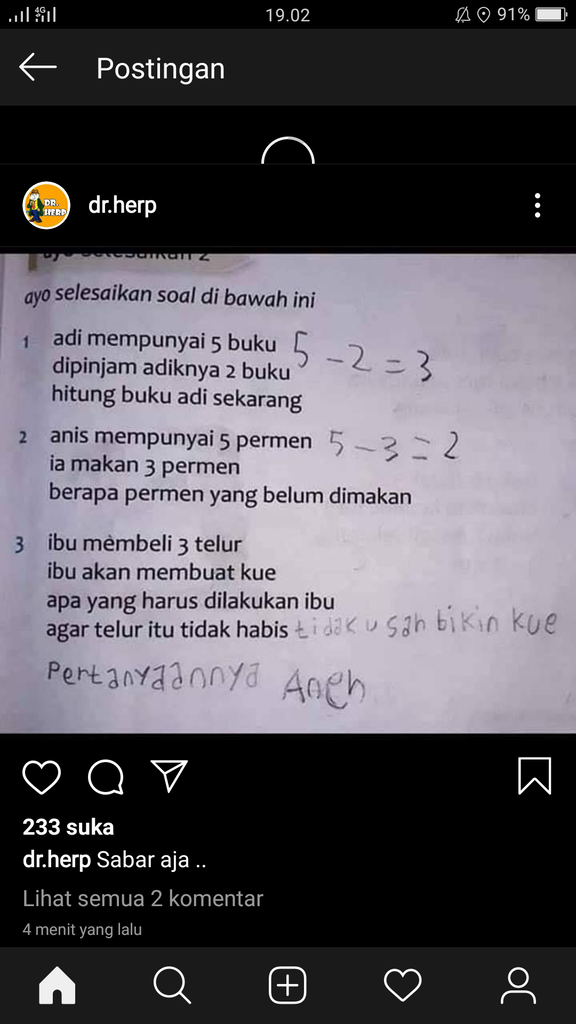 19.02
91%
Postingan
DR. HERP
dr.herp
ayo selesaikan 2
ayo selesaikan soal di bawah ini
1 adi mempunyai 5 buku 5 - 2 = 3
dipinjam adiknya 2 buku
hitung buku adi sekarang
2 anis mempunyai 5 permen 5 - 3 = 2
ia makan 3 permen
berapa permen yang belum dimakan
3 ibu membeli 3 telur
ibu akan membuat kue
apa yang harus dilakukan ibu
agar telur itu tidak habis tidak usah bikin kue
Pertanyaannya Aneh
233 suka
dr.herp Sabar aja ..
Lihat semua 2 komentar
4 menit yang lalu